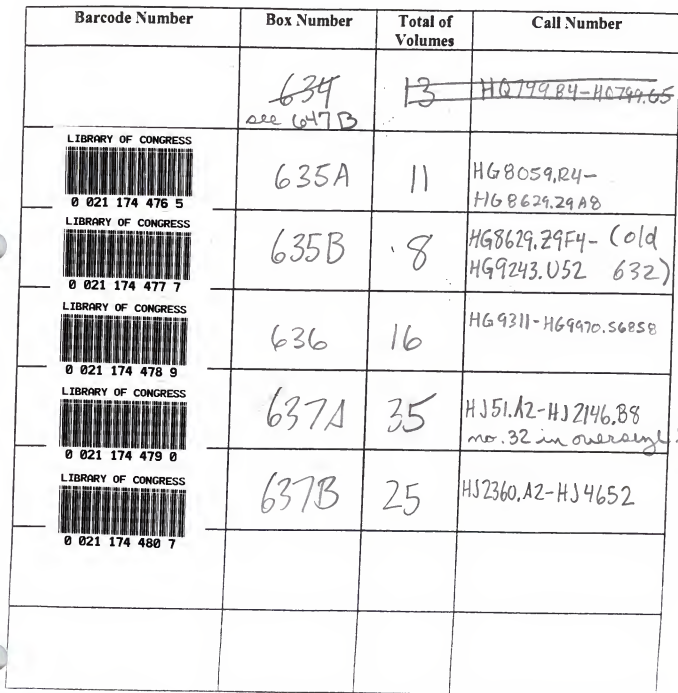 Barcode Number Box Number Total of Volumes Call Number
634 13 HQ799.B4-HQ799.G5
see 647B
LIBRARY OF CONGRESS
0 021 174 476 5
635A 11 HG8059.R4-
HG8629.Z9A8
LIBRARY OF CONGRESS
0 021 174 477 7
635B 8 HG8629.Z9F4- (old
HG9243.U52 632)
LIBRARY OF CONGRESS
0 021 174 478 9
636 16 HG9311-HG9970.S6858
LIBRARY OF CONGRESS
0 021 174 479 0
637A 35 HJ51.A2-HJ2146.B8
no. 32 in oversize
LIBRARY OF CONGRESS
0 021 174 480 7
637B 25 HJ2360.A2-HJ4652